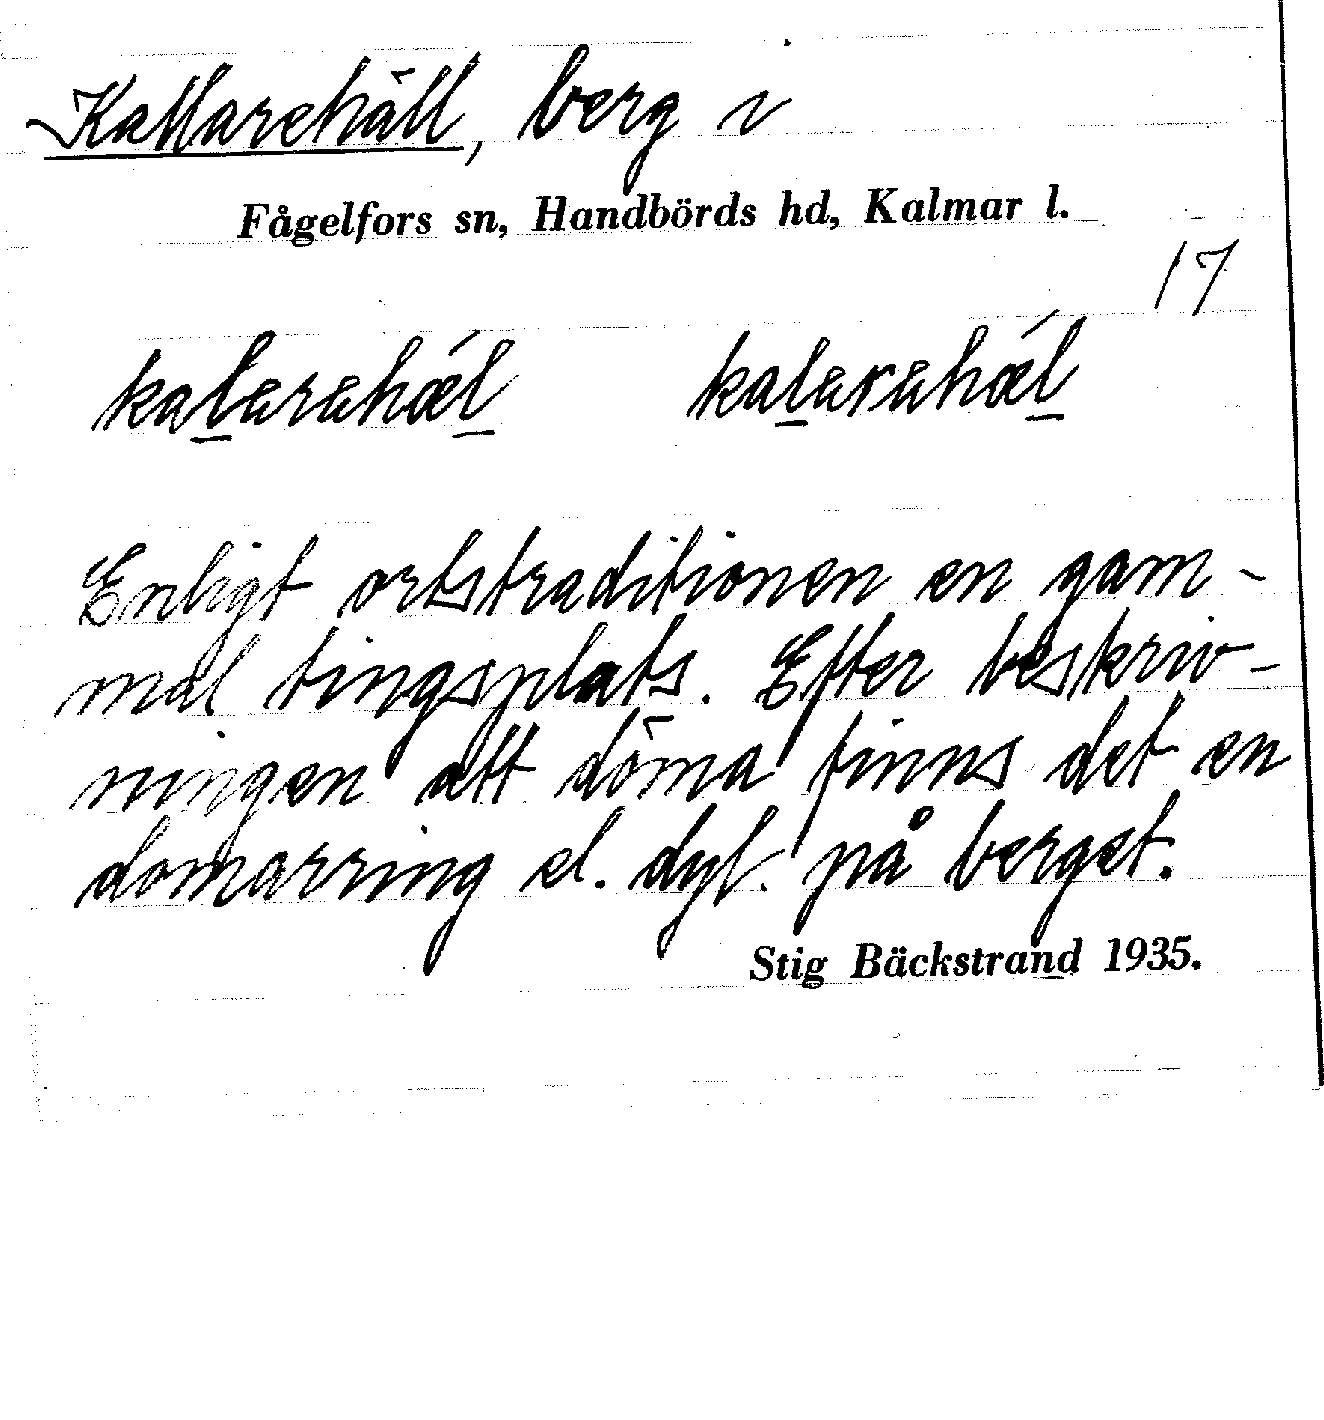 Kallarehäll, berg i
Fågelfors sn, Handbörds hd, Kalmar l.
17
kalarahǽl kalaʀahǽl
Enligt ortstraditionen en gam-
mal tingsplats. Efter beskriv-
ningen att döma finns det en
domarring el. dyl. på berget.
Stig Bäckstrand 1935.